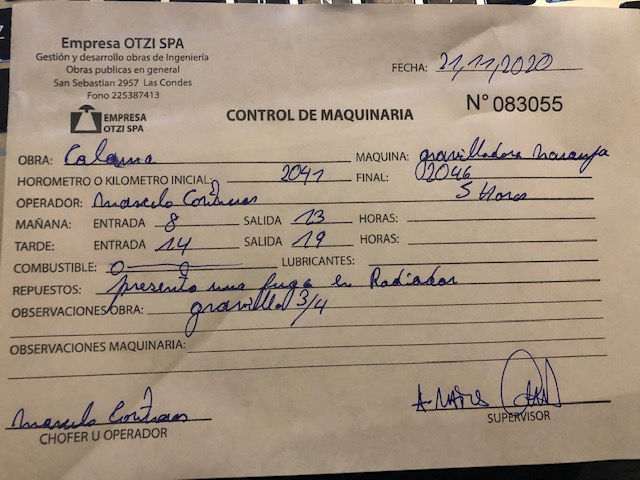 Empresa OTZI SPA
Gestión y desarrollo obras de Ingeniería
Obras publicas en general
San Sebastian 2957 Las Condes
Fono 225387413
FECHA: 21/11/2020
EMPRESA
OTZI SPA
CONTROL DE MAQUINARIA
N° 083055
OBRA: Calama MAQUINA: gravilladora naranja
HOROMETRO O KILOMETRO INICIAL: 2041 FINAL: 02046
OPERADOR: 5 Horas
MAÑANA: ENTRADA 8 SALIDA 13 HORAS:
TARDE: ENTRADA 14 SALIDA 19 HORAS:
COMBUSTIBLE: 0 LUBRICANTES:
REPUESTOS: presenta una fuga en Radiador
OBSERVACIONES/OBRA: gravilla 3/4
OBSERVACIONES MAQUINARIA:
CHOFER U OPERADOR
SUPERVISOR